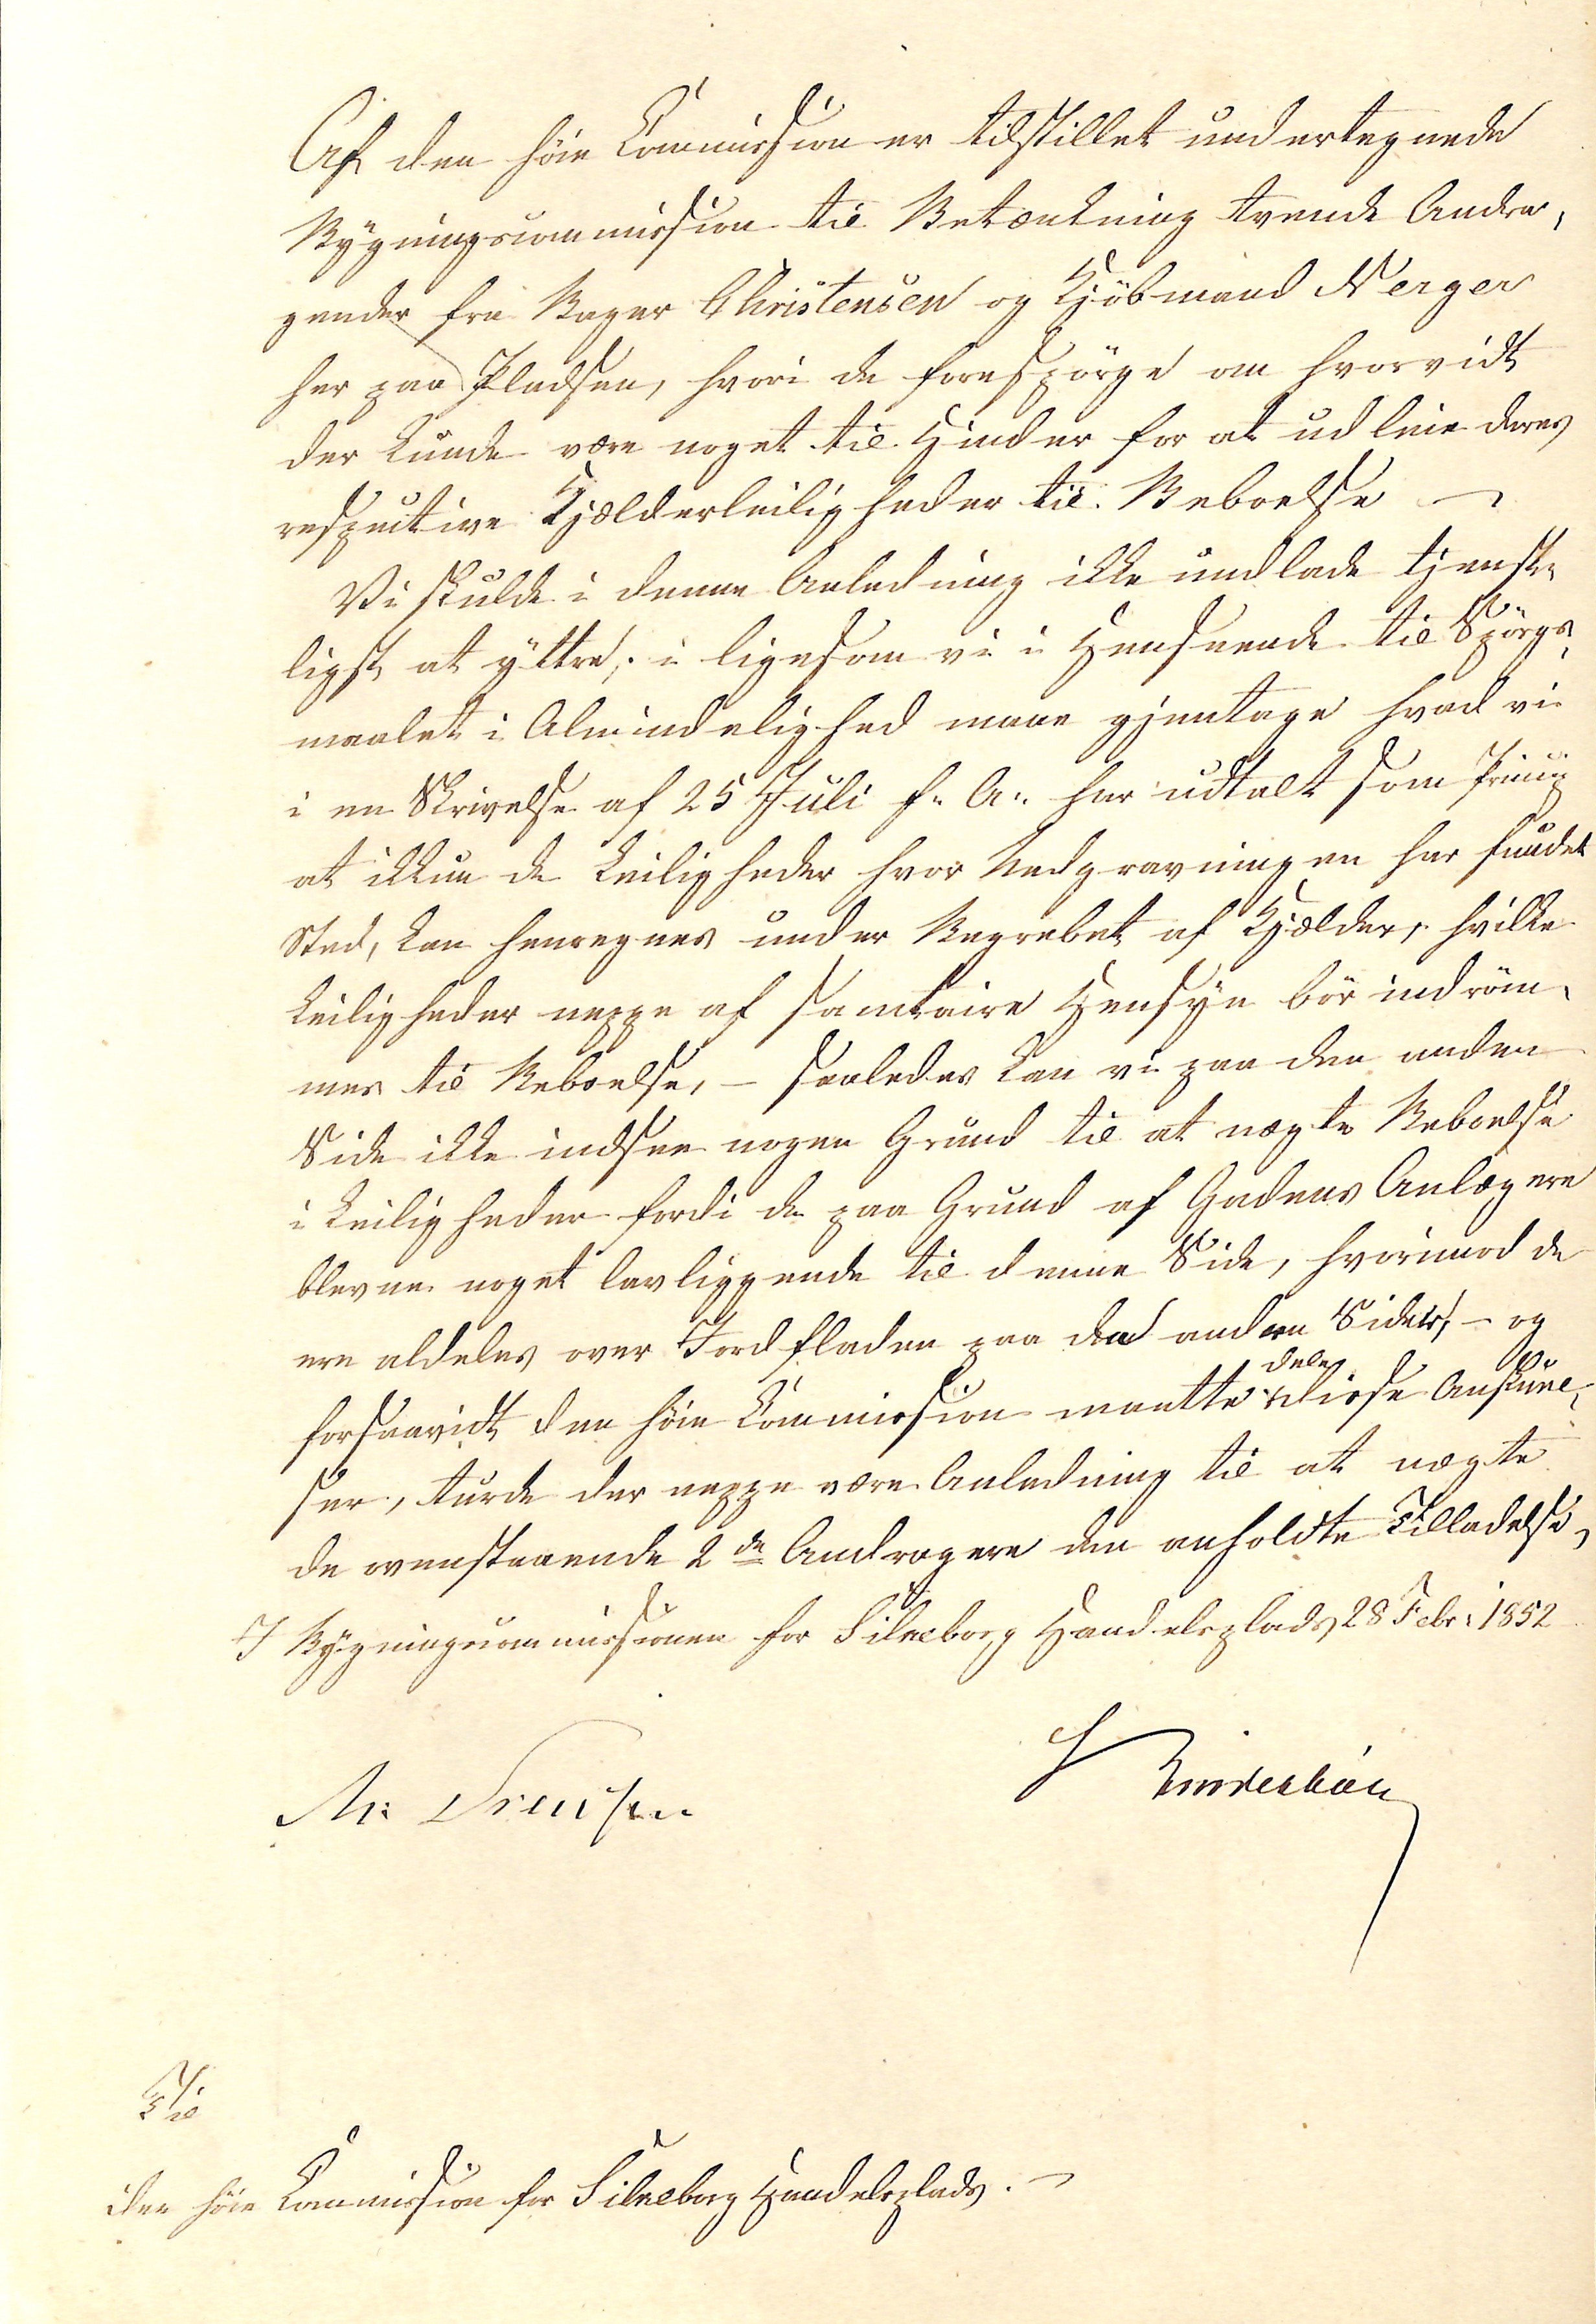 Af den høie Commission er tilstillet undertegnede
Bygningscommission til Betænkning tvende Andra-
gender fra Bager Christensen og Kjøbmand Nerger
her paa Pladsen, hvori de forespørge om hvorvidt
der kunde være noget til Hinder for at udleie deres
respective Kjælderleiligheder til Beboelse —
Vi skulde i denne Anledning ikke undlade tjenst-
ligst at yttre, i ligesom vi i Henseende til Spörgs-
maalet i Almindelighed maae gjentage hvad vi
i en Skrivelse af 25 Juli f. A. har udtalt som Princip
at ikkun de Leiligheder hvor Nedgravningen har fundet
Sted, kan henregnes under Begrebet af Kjælder, hvilke
Leiligheder neppe af sanitaire Hensyn bör indröm-
mes til Beboelse, — saaledes kan vi paa den anden
Side ikke indsee nogen Grund til at nægte Beboelse
i Leiligheder fordi de paa Grund af Gadens Anlæg ere
blevne noget lavliggende til denne Side, hvorimod de
ere aldeles over Jordfladen paa den anden Side, — og
forsaavidt den høie Commission maatte dele disse Anskuel-
ser, turde der neppe være Anledning til at nægte
de ovenstaaende 2de Andragere den anholdte Tilladelse,
I Bygningscommissionen for Silkeborg Handelsplads 28 Febr: 1852
Til
den høie Commission for Silkeborg Handelsplads. —